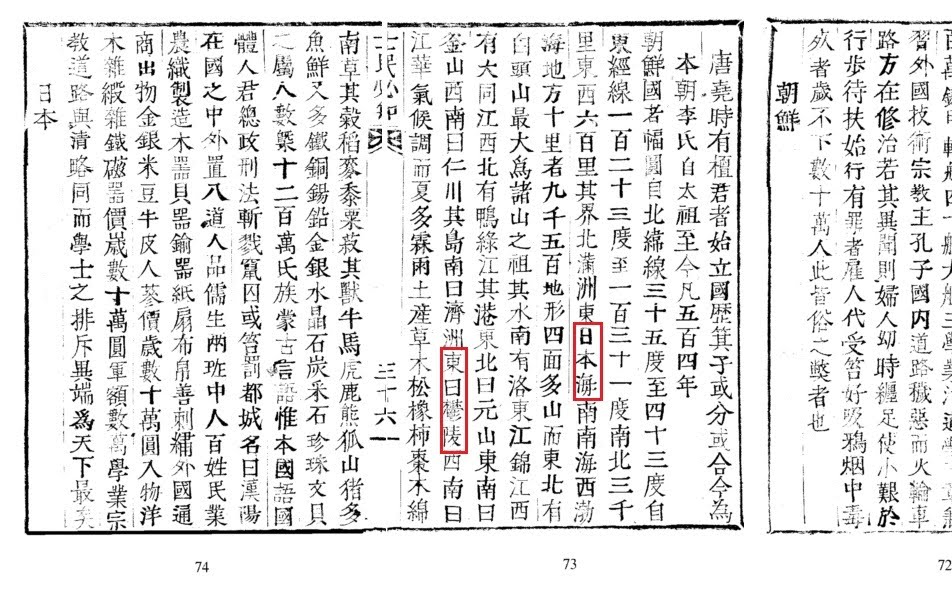 習外國技術宗教主孔子國内道路穢惡而火輪車
路方在修治若其異聞則婦人幼時纏足使小艱於
行步待扶始行有罪者雇人代受笞好吸鴉烟中毒
死者歲不下數十萬人此皆俗之獘者也
朝鮮
唐堯時有檀君者始立國歷箕子或分或合今為
本朝李氏自太祖至今凡五百四年
朝鮮國者幅圓自北緯線三十五度至四十三度自
東經線一百二十三度至一百三十一度南北三千
里東西六百里其界北滿洲東日本海南南海西渤
海地方十里者九千五百地形四面多山而東北有
白頭山最大爲諸山之祖其水南有洛東江錦江西
有大同江西北有鴨綠江其港東北曰元山東南曰
釜山西南曰仁川其島南曰濟洲東曰鬱陵西南曰
江華氣候調而夏多霖雨土産草木松橡柿棗木綿
士民必知 三十六
南草其穀稻麥黍粟菽其獸牛馬虎鹿熊狐山猪多
魚鮮又多鐵銅錫鉛金銀水晶石炭采石珍珠文貝
之屬人數槩十二百萬氏族蒙古言語惟本國語國
體人君總政刑法斬戮竄囚或笞罰都城名曰漢陽
在國之中外置八道人品儒生兩班中人百姓民業
農織製造木器貝器鍮器紙扇布帛善刺繡外國通
商出物金銀米豆牛皮人蔘價歲數十萬圓入物洋
木雜緞雜鐵磁器價歲數十萬圓軍額數萬學業宗
教道路與清略同而學士之排斥異端爲天下最矣
日本
74
73
72